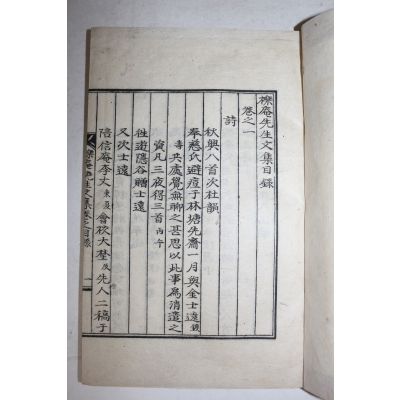 櫟庵先生文集目錄
卷之一
詩
秋興八首次杜韻
奉慈氏避痘于林塘先齋一月與金士遠鍰
壽共處覺無聊之甚思以此事爲消遣之
資凡三夜得三首丙午
往道隱谷贈士遠
又次士遠
陪信庵李丈東夏會校大埜及先人二稿于
櫟庵先生文集卷之目錄 一